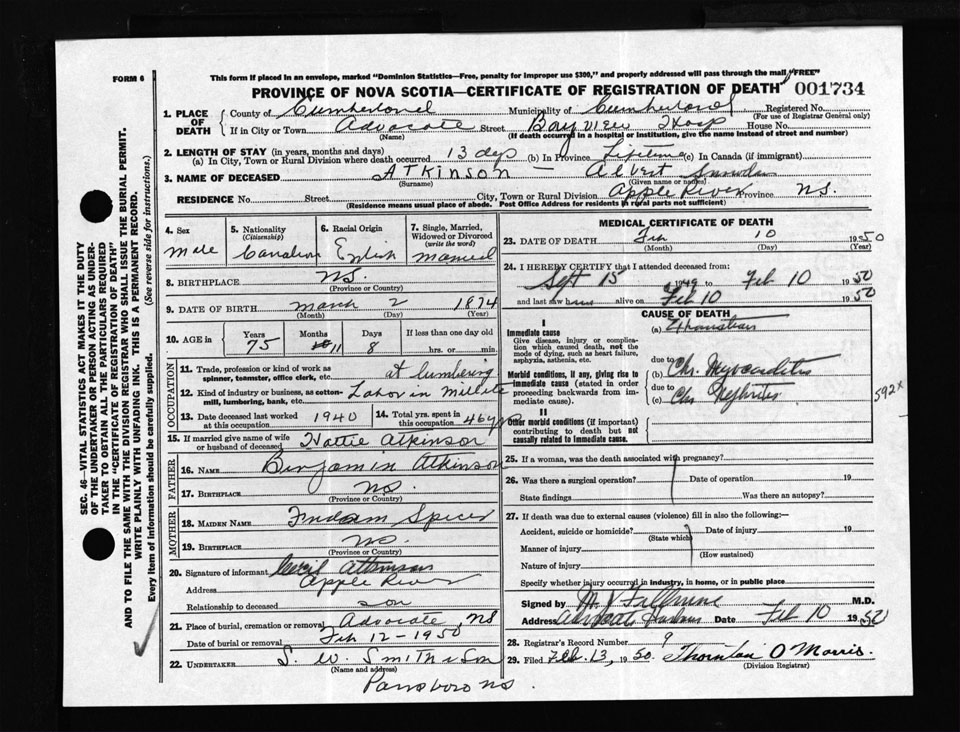 FORM 6
This form if placed in an envelope, marked "Dominion Statistics—Free, penalty for improper use $300," and properly addressed will pass through the mail "FREE"
PROVINCE OF NOVA SCOTIA—CERTIFICATE OF REGISTRATION OF DEATH 001734
1. PLACE OF DEATH County of Cumberland Municipality of Cumberland Registered No.
(For use of Registrar General only)
If in City or Town Advocate Street Bay view Hosp House No.
(Name) (If death occurred in a hospital or institution, give the name instead of street and number)
2. LENGTH OF STAY (in years, months and days)
(a) In City, Town or Rural Division where death occurred 13 dys (b) In Province Lifetime (c) In Canada (if immigrant)
3. NAME OF DECEASED ATKINSON — Albert
(Surname) (Given name or names)
RESIDENCE No. Street City, Town or Rural Division Apple River Province NS.
(Residence means usual place of abode. Post Office Address for residents in rural parts not sufficient)
4. Sex Male
5. Nationality (Citizenship) Canadian
6. Racial Origin English
7. Single, Married, Widowed or Divorced (write the word) Married
8. BIRTHPLACE NS.
(Province or Country)
9. DATE OF BIRTH March 2 1874
(Month) (Day) (Year)
10. AGE in Years Months Days If less than one day old
75 11 8 hrs. or min.
OCCUPATION
11. Trade, profession or kind of work as spinner, teamster, office clerk, etc. at lumbering
12. Kind of industry or business, as cotton-mill, lumbering, bank, etc. Labor in
13. Date deceased last worked at this occupation 1940
14. Total yrs. spent in this occupation 46 yrs
15. If married give name of wife or husband of deceased Hattie Atkinson
FATHER
16. NAME Binjamin Atkinson
17. BIRTHPLACE NS.
(Province or Country)
MOTHER
18. MAIDEN NAME Spicer
19. BIRTHPLACE NS.
(Province or Country)
20. Signature of informant Cecil Atkinson
Address Apple River
Relationship to deceased son
21. Place of burial, cremation or removal Advocate, NS
Date of burial or removal Feb 12 - 1950
22. UNDERTAKER S. W. Smith & Son
(Name and address)
Parrsboro NS.
MEDICAL CERTIFICATE OF DEATH
23. DATE OF DEATH Feb 10 1950
(Month) (Day) (Year)
24. I HEREBY CERTIFY that I attended deceased from:
Sept 15 1949 to Feb 10 1950
and last saw him alive on Feb 10 1950
CAUSE OF DEATH
I
Immediate cause
Give disease, injury or complication which caused death, not the mode of dying, such as heart failure, asphyxia, asthenia, etc.
(a) Exhaustion
due to
Morbid conditions, if any, giving rise to immediate cause (stated in order proceeding backwards from immediate cause).
(b) Chr. Myocarditis
due to
(c) Chr Nephritis
592x
II
Other morbid conditions (if important) contributing to death but not causally related to immediate cause.
25. If a woman, was the death associated with pregnancy?
26. Was there a surgical operation? Date of operation 19
State findings Was there an autopsy?
27. If death was due to external causes (violence) fill in also the following:—
Accident, suicide or homicide? Date of injury 19
(State which)
Manner of injury
(How sustained)
Nature of injury
Specify whether injury occurred in industry, in home, or in public place
Signed by M.D.
Address Advocate Harbour Date Feb 10 1950
28. Registrar's Record Number 9
29. Filed Feb. 13, 1950. Thornton O Morris.
(Division Registrar)
SEC. 46—VITAL STATISTICS ACT MAKES IT THE DUTY
OF THE UNDERTAKER OR PERSON ACTING AS UNDER-
TAKER TO OBTAIN ALL THE PARTICULARS REQUIRED
IN THE "CERTIFICATE OF REGISTRATION OF DEATH"
AND TO FILE THE SAME WITH THE DIVISION REGISTRAR WHO SHALL ISSUE THE BURIAL PERMIT.
WRITE PLAINLY WITH UNFADING INK. THIS IS A PERMANENT RECORD.
Every item of information should be carefully supplied. (See reverse side for instructions.)